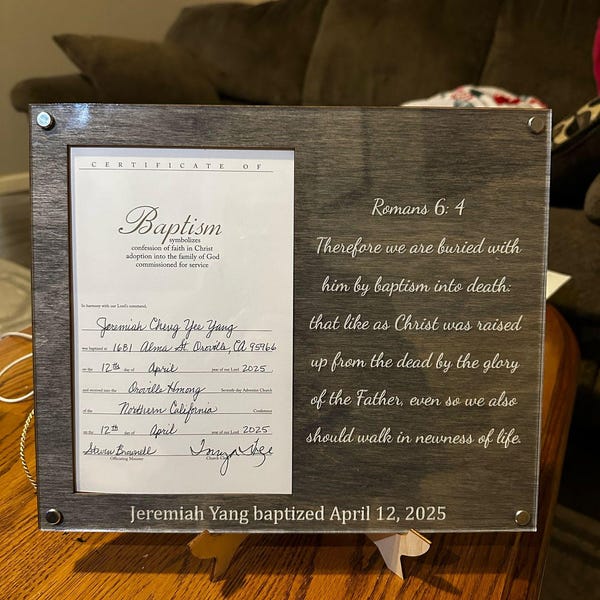 CERTIFICATE OF
Baptism
symbolizes
confession of faith in Christ
adoption into the family of God
commissioned for service
In harmony with our Lord's command,
Jeremiah Cheng Yee Yang
was baptized at 1681 Alma St. Oroville, CA 95966
on the 12th day of April year of our Lord 2025
and received into the Oroville Hmong Seventh-day Adventist Church
of the Northern California Conference
on the 12th day of April year of our Lord 2025
Officiating Minister Church Clerk
Romans 6: 4
Therefore we are buried with
him by baptism into death:
that like as Christ was raised
up from the dead by the glory
of the Father, even so we also
should walk in newness of life.
Jeremiah Yang baptized April 12, 2025